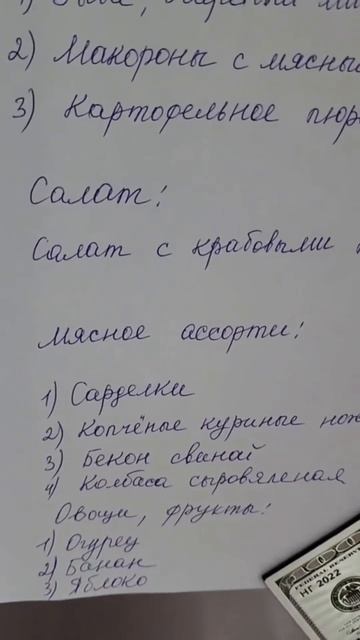 2) Макороны с мясны
3) Картофельное пюр
Салат:
Салат с крабовыми
Мясное ассорти:
1) Сарделки
2) Копчёные куриные нож
3) Бекон свинай
4) Колбаса сыровяленая
Овощи, фрукты:
1) Огурец
2) Банан
3) Яблоко
100
FEDERAL RESERVE
НГ 2022